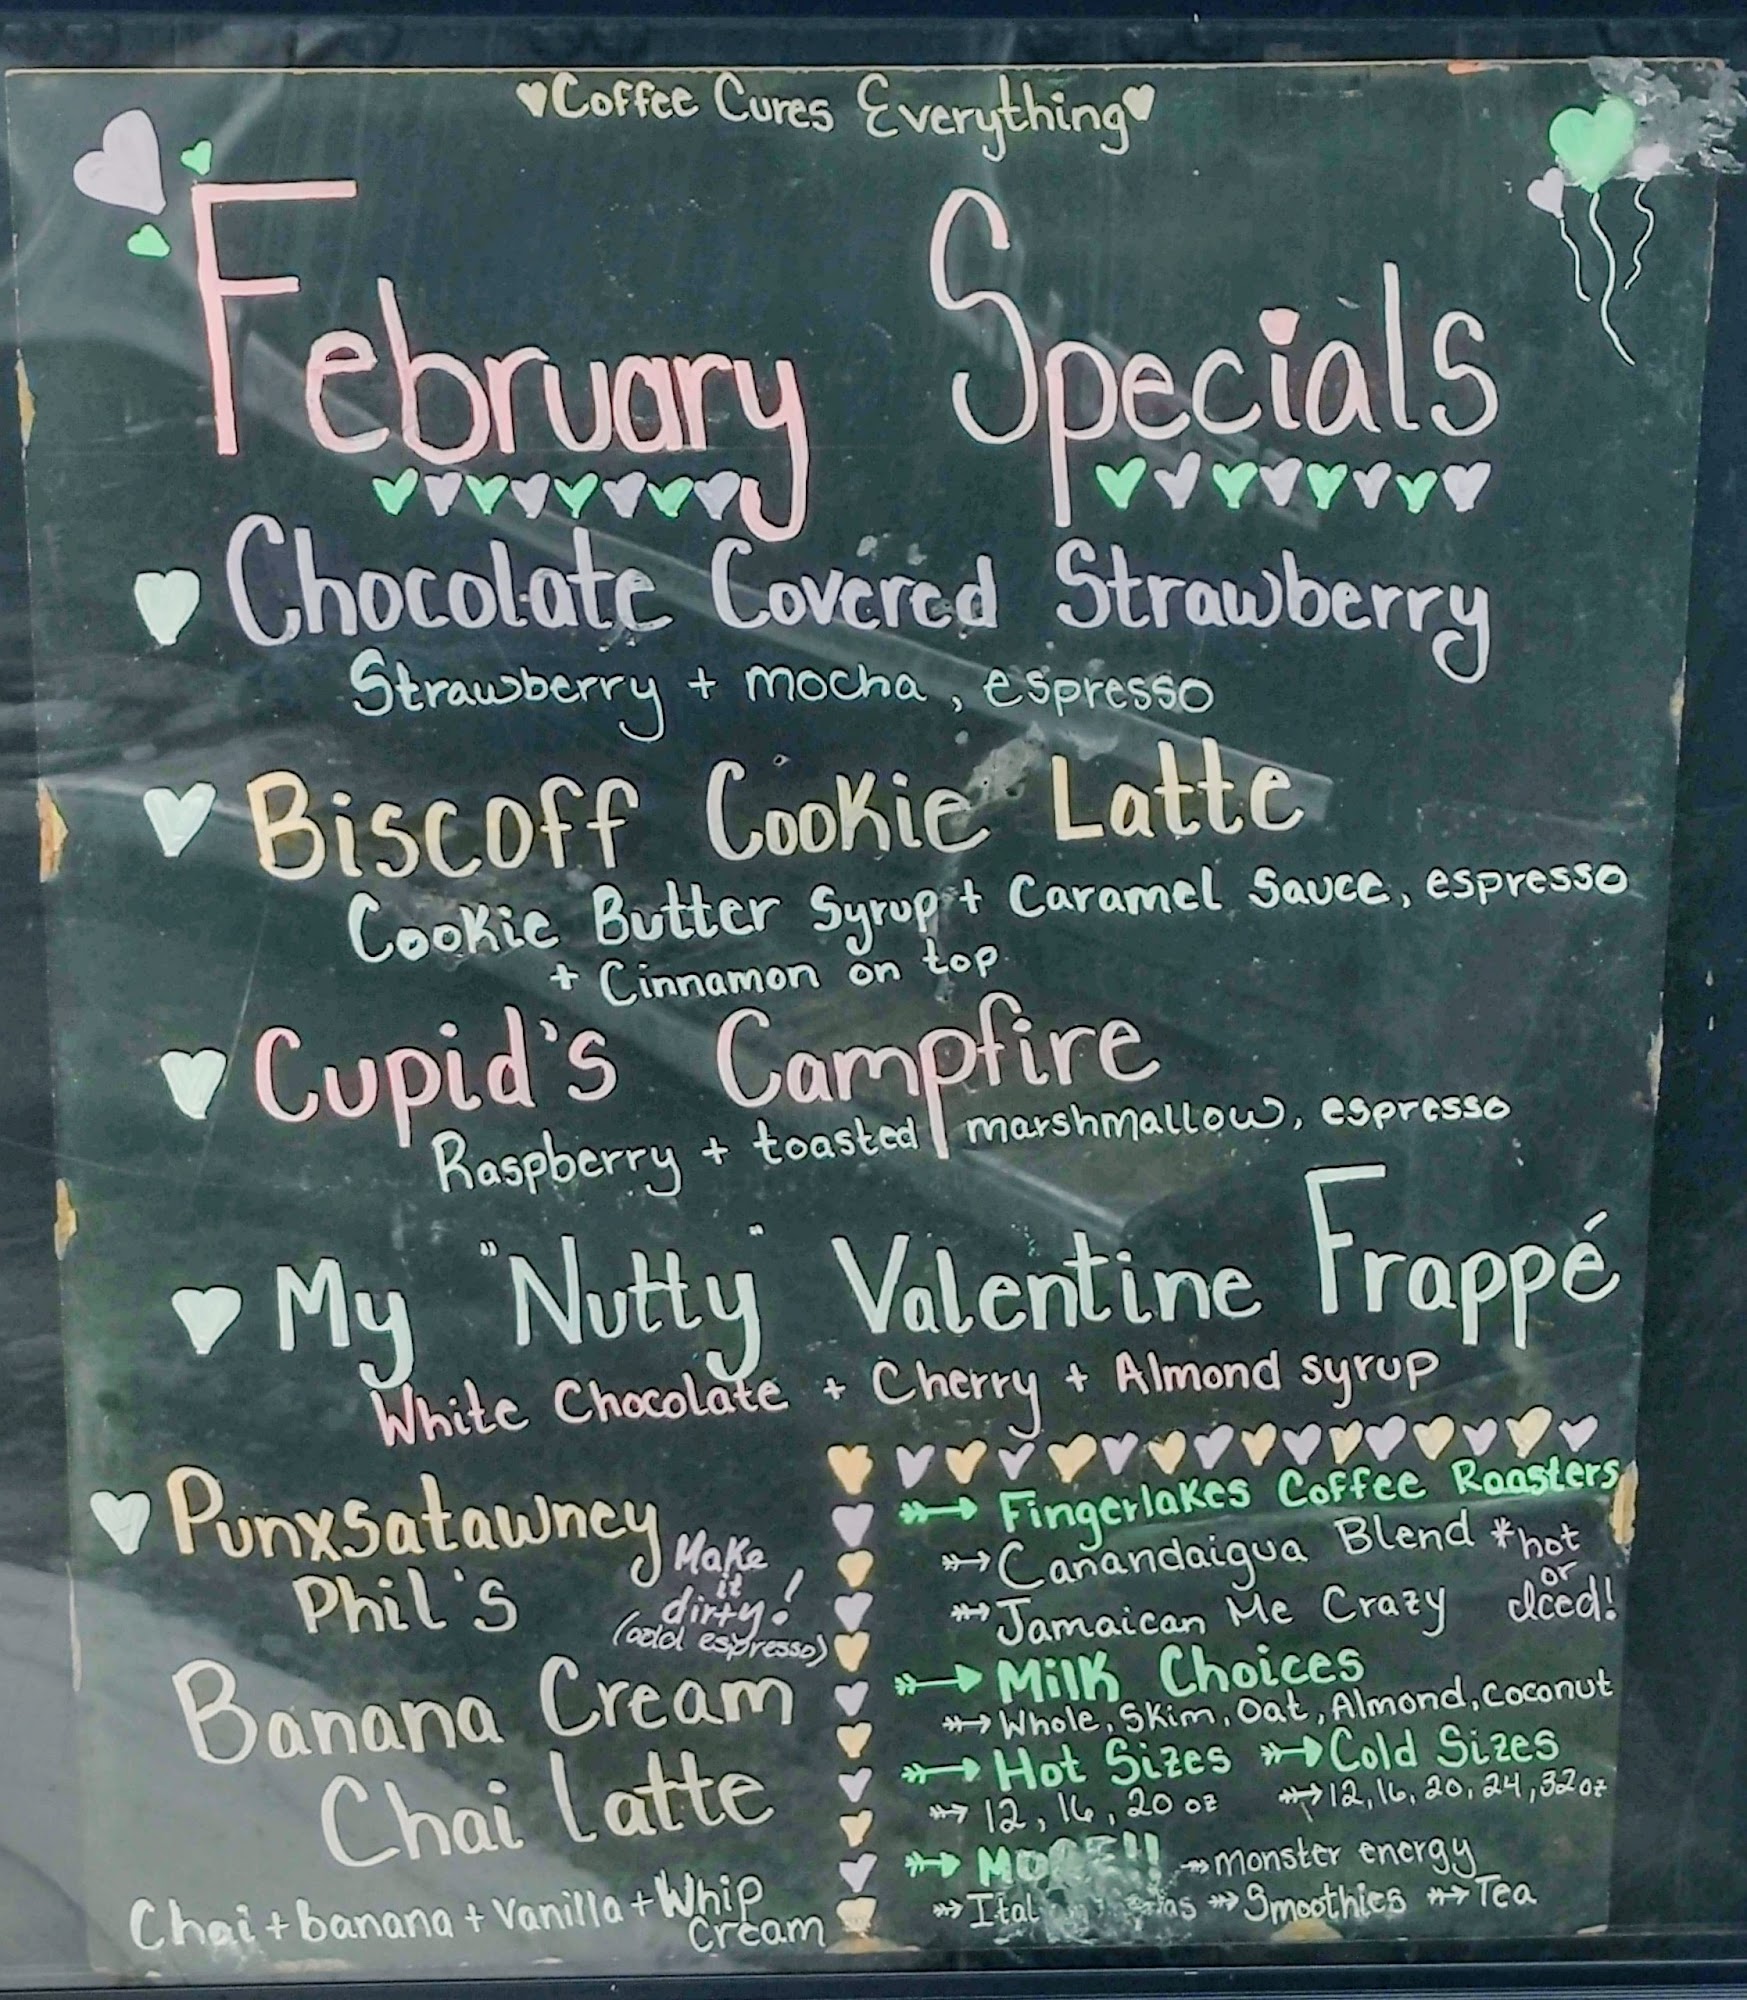 ♥Coffee Cures Everything♥
February Specials
Chocolate Covered Strawberry
Strawberry + mocha, espresso
Biscoff Cookie Latte
Cookie Butter Syrup + Caramel Sauce, espresso
+ Cinnamon on top
Cupid's Campfire
Raspberry + toasted marshmallow, espresso
My "Nutty" Valentine Frappé
White Chocolate + Cherry + Almond syrup
Punxsatawney
Phil's
Make
it
dirty!
(add espresso)
Banana Cream
Chai Latte
Chai + banana + Vanilla + Whip
Cream
Fingerlakes Coffee Roasters
Canandaigua Blend
Jamaican Me Crazy
*hot
or
iced!
Milk Choices
Whole, Skim, Oat, Almond, Coconut
Hot Sizes
12, 16, 20 oz
Cold Sizes
12, 16, 20, 24, 32 oz
monster energy
Smoothies Tea